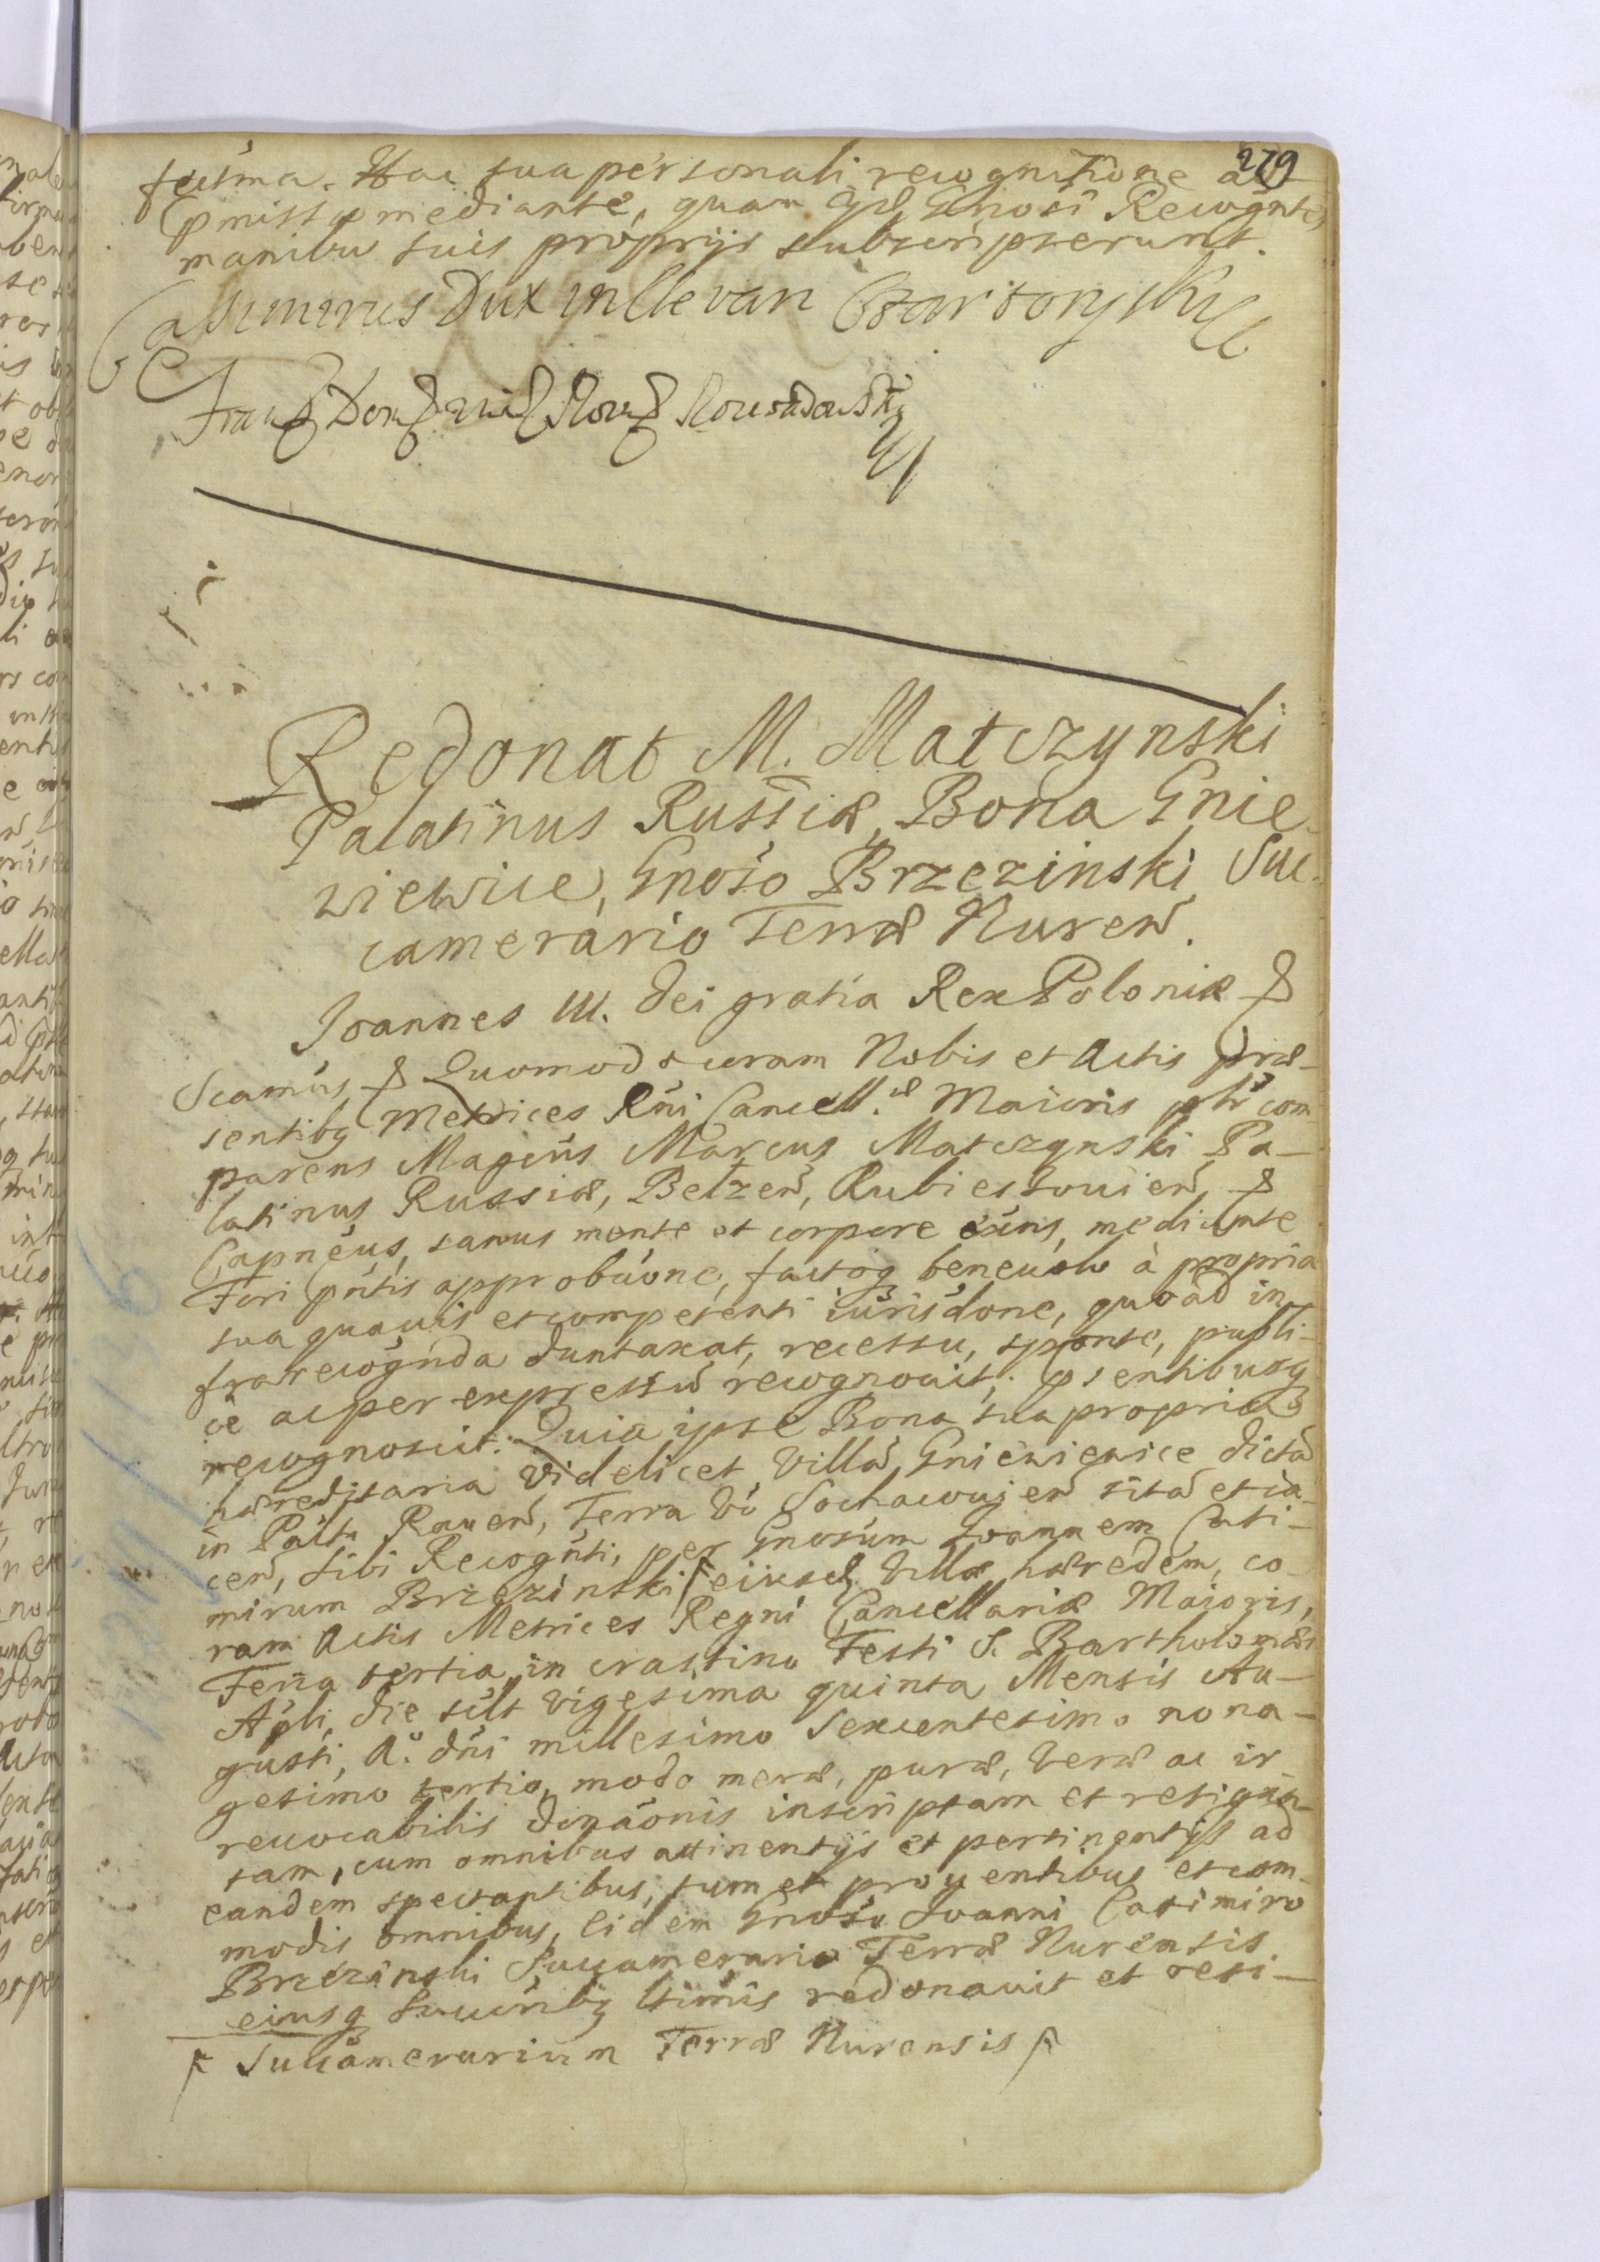 279
fectima. Hac sua personali recognitione ad
p̃missa mediante, quam ijd. Gñosi Recogñtes
manibus suis proprijs subscripserunt.
Casimirus Dux in Clevan Czartoryski
Redonat M. Matczynski
Palatinus Russiæ, Bona Gnie-
wiewice, Gnoso Brzezinski Suc-
camerario Terræ Nureñ.
Joannes III. Dei gratia Rex Poloniæ &
Scamus & Quomodo coram Nobis et Actis præ-
sentibq Metrices Rñi Cancell.æ Maioris plr com
parens Magcus Marcus Matczynski Pa-
latinus Russiæ, Belzeñ, Rubiestouieñ &
Capneus, sanus mente et corpore exñs, mediante
Fori pñtis approbaone, factoq beneuolo à propria
sua quauis et competenti iurisdone, quoad in
fra recogñda duntaxat, recessu, sponte, publi-
ce ac per expressũ recognouit, p̃sentibusq
recognoscit: Quia ipse Bona sua propria
hæreditaria videlicet Villã Gniewiewice dictã
in Paltu Raueñ, Terra vo Sochaceuieñ sitã et ia-
ceñ, sibi Recogñti, per Gnosum Joannem Casi-
mirum Brzezinski F eiusd. Villæ hæredem, co-
ram Actis Metrices Regni Cancellariæ Maioris,
Feria tertia in crastino Festi S. Bartholomæi
Apli, die silt vigesima quinta Mensis Au-
gusti, A.o dñi millesimo Sexcentesimo nona-
gesimo tertio, modo meræ, puræ, veræ ac ir-
reuocabilis donaonis inscriptam et resigna-
tam, cum omnibus attinentijs et pertinentijs ad
eandem spectantibus, tum et prouentibus et com-
modis omnibus, Eidem Gnoso Joanni Casimiro
Brzezinski Succamerario Terræ Nurensis.
eiusq Succribq ltimis redonauit et resi-
F Succamerarium Terræ Nurensis F